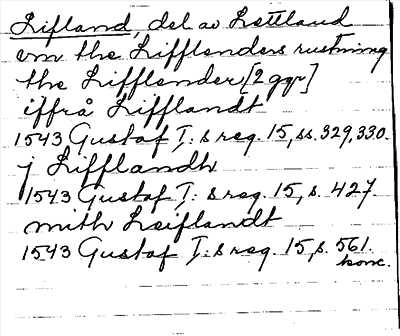 Lifland, del av Lettland
om the Lifflenders rustning
the Lifflender [2 ggr]
iffrå Lifflandt
1543 Gustaf I:s reg. 15, ss. 329, 330.
j Lifflandh
1543 Gustaf I:s reg. 15, s. 427.
mith Leiflandt
1543 Gustaf I:s reg. 15, s. 561.
konc.